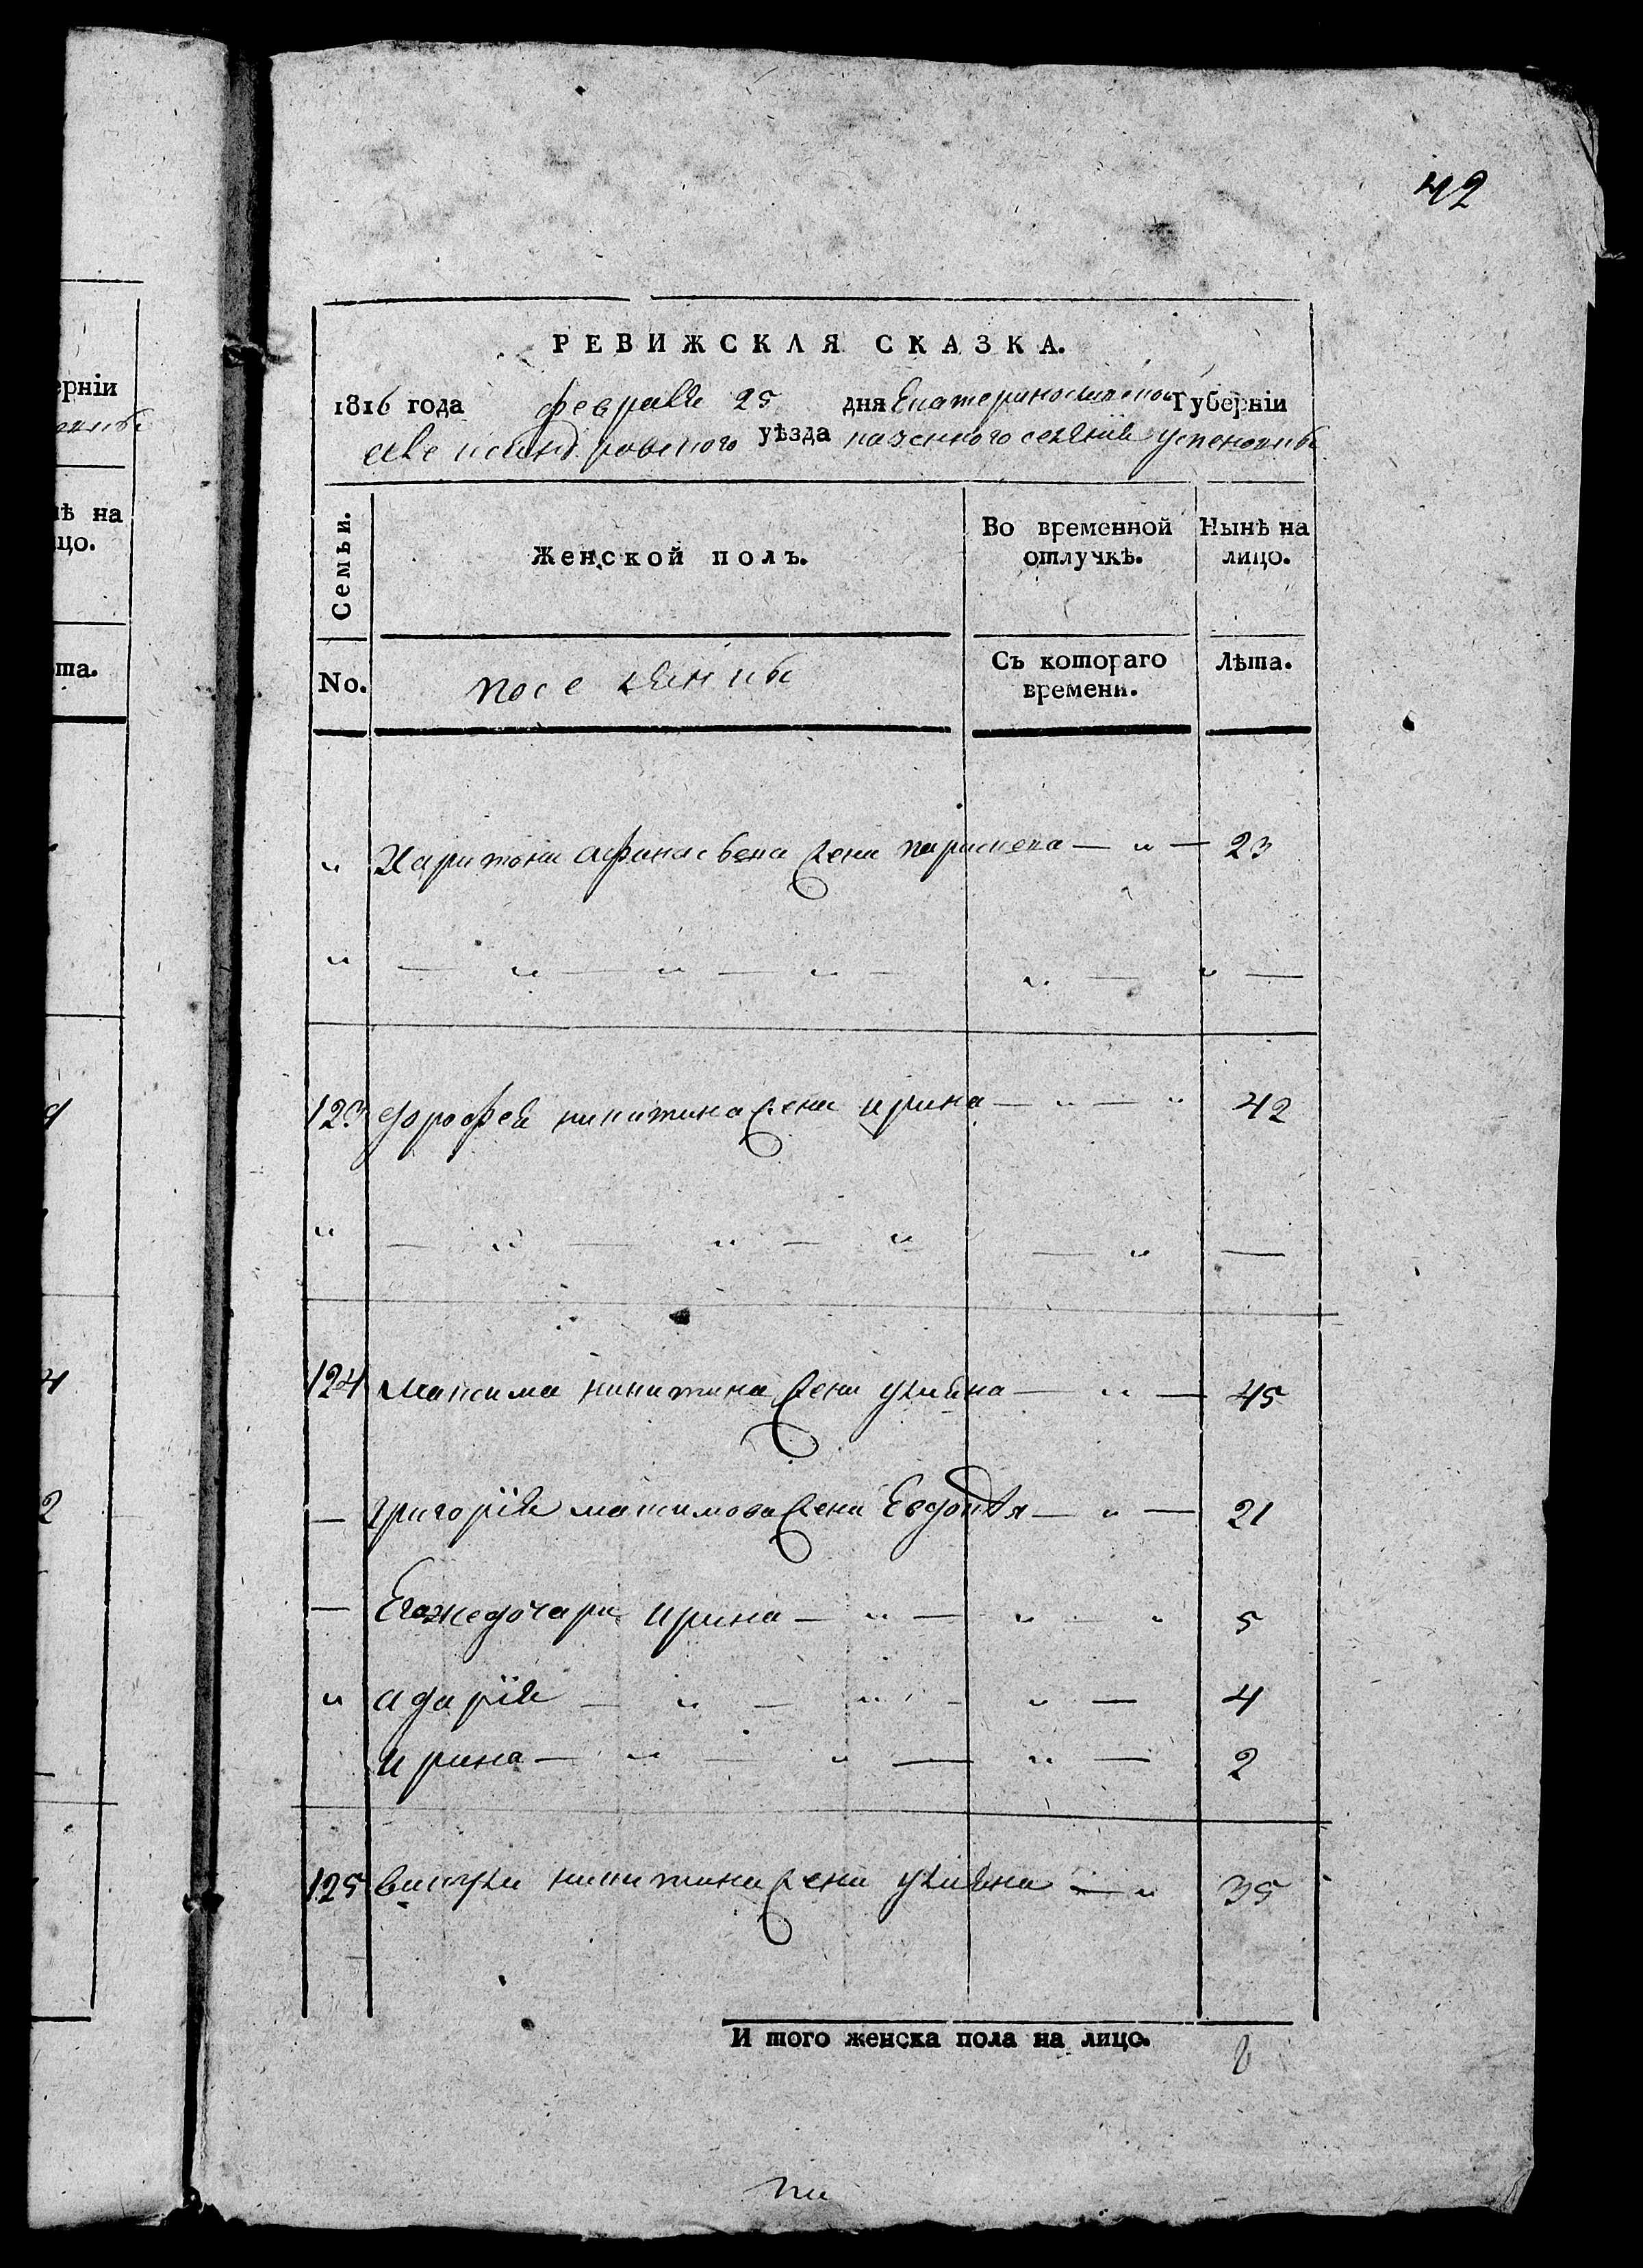 42
РЕВИЖСКАЯ СКАЗКА.
1816 года февраля 25 дня Екатеринославской Губерніи
Александровского уѣзда казенного селения Успеновки
Семьи.
Женской полъ.
Во временной отлучкѣ.
Нынѣ на лицо.
No.
поселяники
Съ котораго времени.
Лѣта.
" Харитона афанасьева жена параскева — " — 23
" — " — " — " — " — " —
123 дорофея никитина жена ирина — " — " 42
" — " — " — " — " —
124 максима никитина жена улияна — " — 45
— григорїя максимова жена Евдокія — " — 21
— Егожедочери ирина — " — " — " 5
" адарїя — " — " — " — 4
ирина — " — " — " — 2
125 викулы никитина жена улияна — " 35
И того женска пола на лицо. 8
ерніи
ѣ на
цо.
та.
4
2